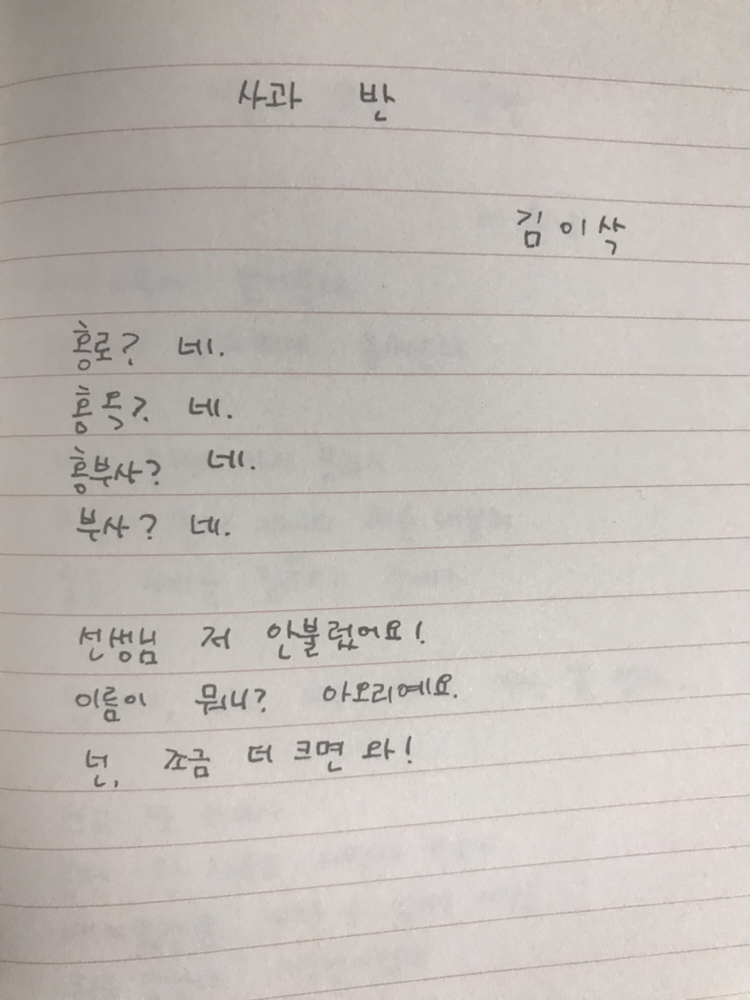 사과 반
김이삭
홍로? 네.
홍옥? 네.
홍부사? 네.
부사? 네.
선생님 저 안불렀어요!
이름이 뭐니? 아오리예요.
넌, 조금 더 크면 와!